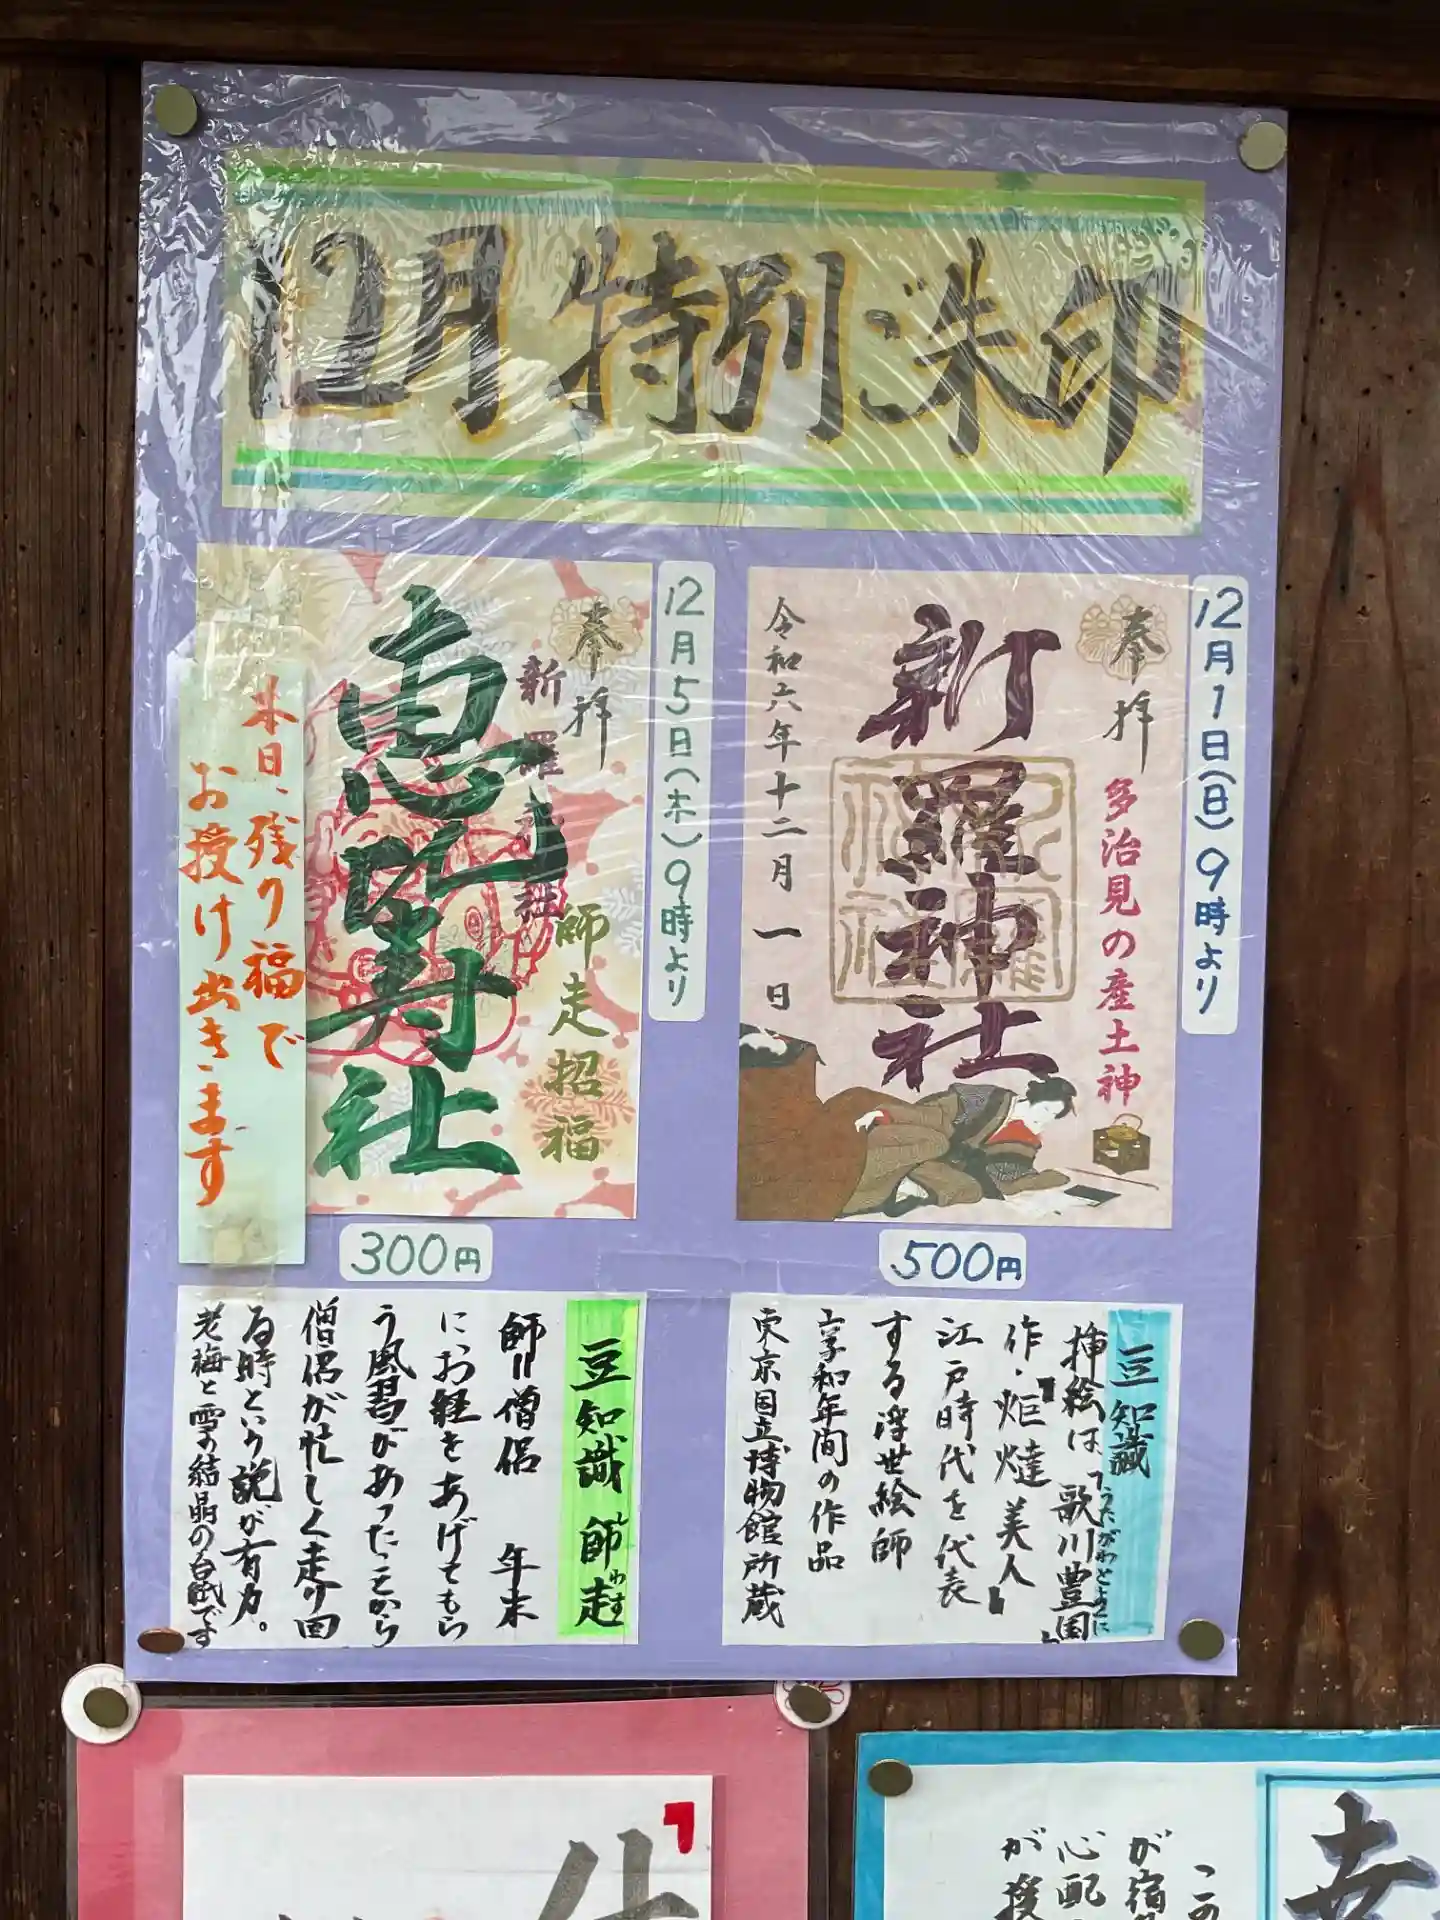 12月 特別 朱印
12月1日(日)9時より
奉拝
多治見の産土神
新羅神社
令和六年十二月一日
500円
12月5日(木)9時より
奉拝
新羅神社
師走招福
恵比寿社
本日、残り福で
お授け出きます
300円
豆知識
挿絵は「歌川豊国」
うたがわとよくに
作・『炬燵美人』
江戸時代を代表
する浮世絵師
享和年間の作品
東京国立博物館所蔵
豆知識 師走
しわす
師=僧侶 年末
にお経をあげてもら
う風習があったことから
僧侶が忙しく走り回
る時という説が有力。
老梅と雪の結晶の台紙です
この
が宿
心配
が授
幸